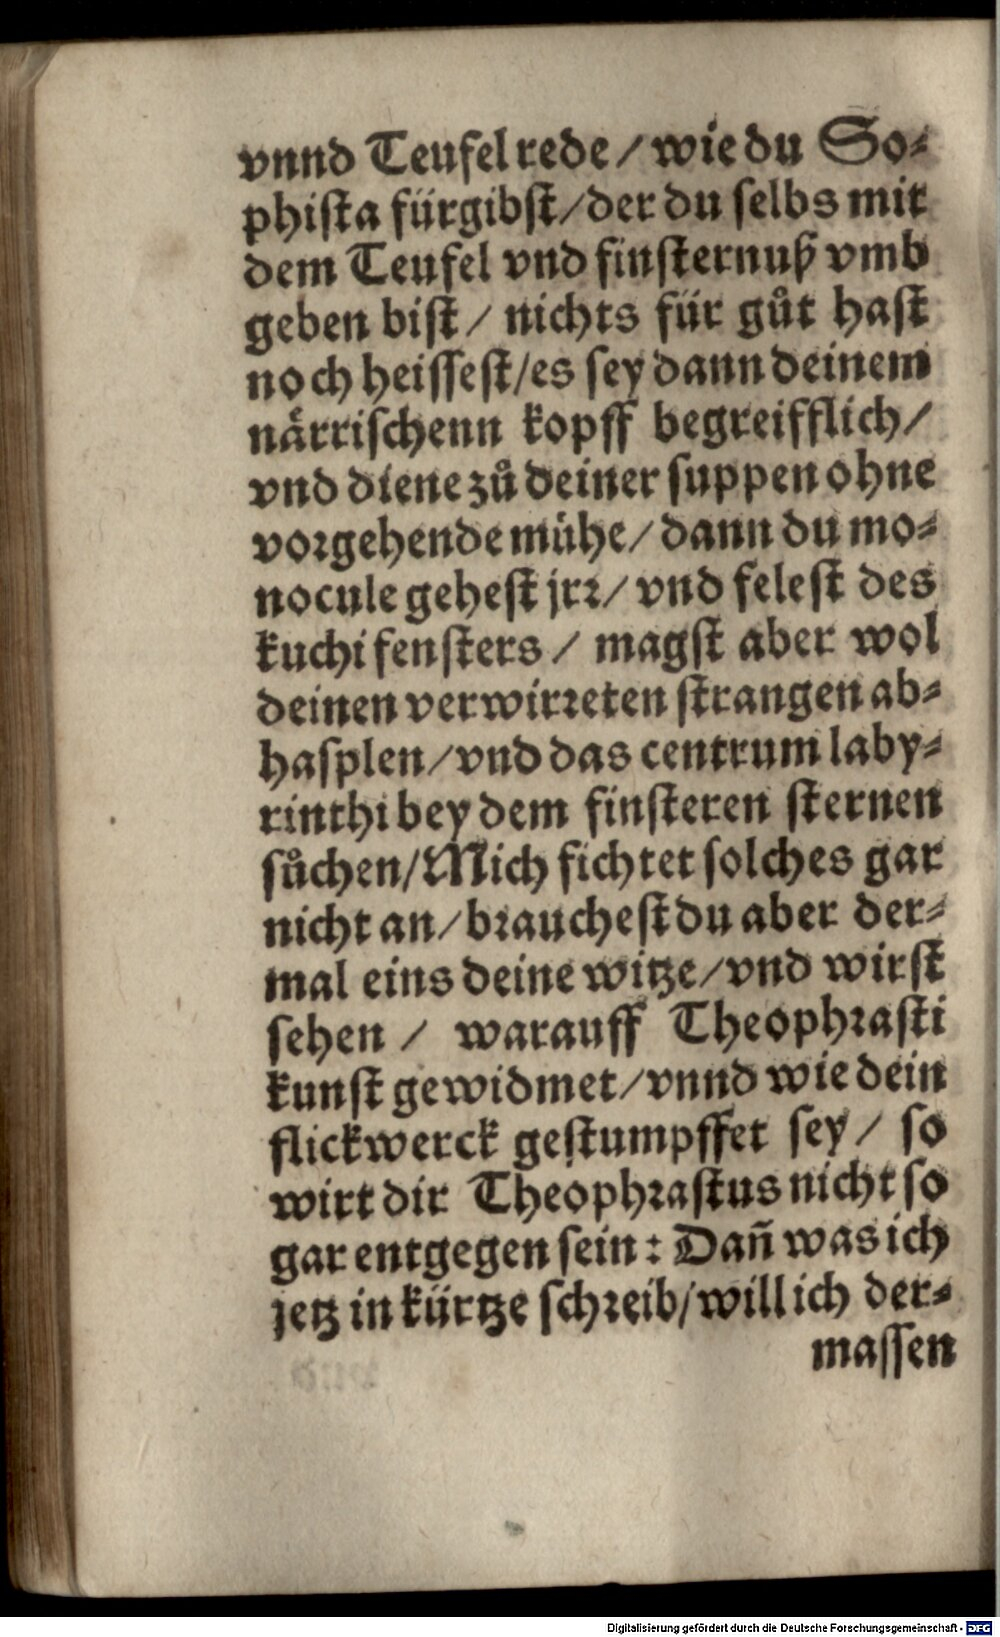 vnnd Teufel rede / wie du So⸗
phista fürgibst / der du selbs mit
dem Teufel vnd finsternuß vmb
geben bist / nichts für gůt hast
noch heissest / es sey dann deinem
nårrischenn kopff begreifflich /
vnd diene zů deiner suppen ohne
vorgehende mühe / dann du mo⸗
nocule gehest jrr / vnd felest des
kuchifensters / magst aber wol
deinen verwirreten strangen ab⸗
hasplen / vnd das centrum laby⸗
rinthi bey dem finsteren sternen
sůchen / Mich fichtet solches gar
nicht an / brauchest du aber der⸗
mal eins deine witze / vnd wirst
sehen / warauff Theophrasti
kunst gewidmet / vnnd wie dein
flickwerck gestumpffet sey / so
wirt dir Theophrastus nicht so
gar entgegen sein : Dañ was ich
jetz in kürtze schreib / will ich der⸗
massen
Digitalisierung gefördert durch die Deutsche Forschungsgemeinschaft - DFG